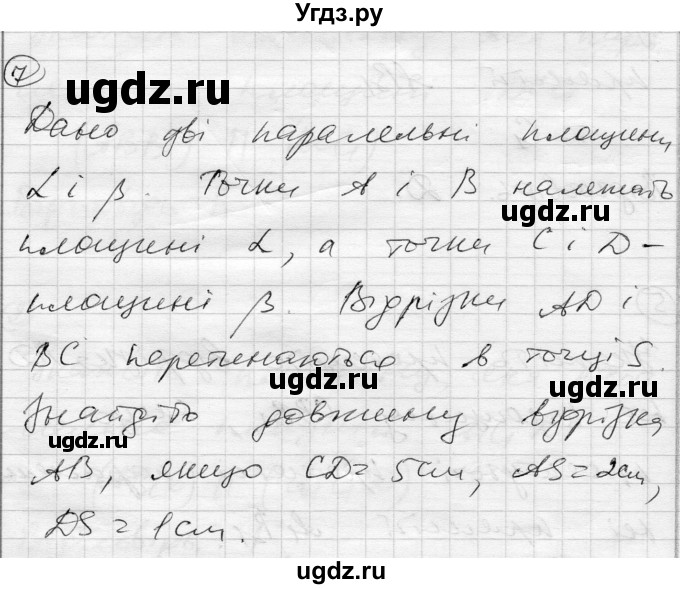 Угдз.ру
7
ugdz.ru
Дано дві паралельні площини
α і β. Точки A і B належать
ugdz.ru
площині α, а точки C і D -
площині β. Відрізки AD і
BC перетинаються в точці S.
ugdz.ru
ugdz.ru
Знайдіть довжину відрізка
ugdz.ru
AB, якщо CD = 5 см, AS = 2 см,
DS = 1 см.
ugdz.ru
ugdz.ru